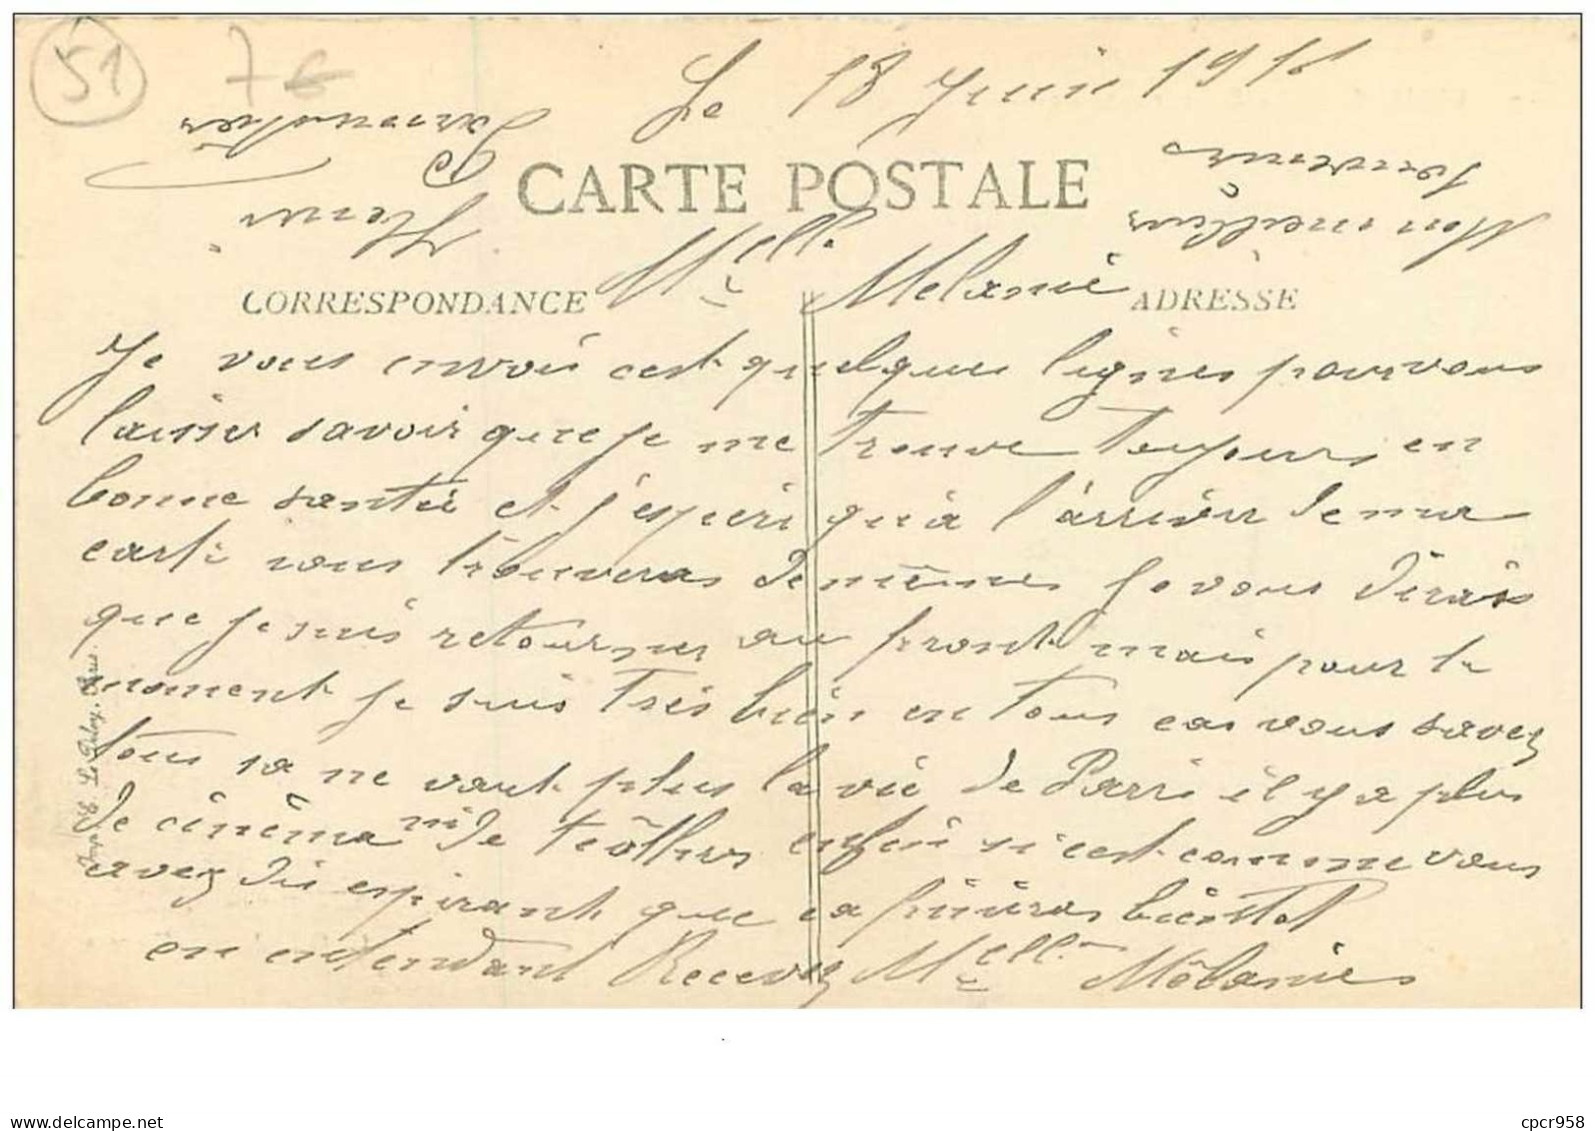 51
Le 18 Juin 1916
CARTE POSTALE
Melle Melanie
CORRESPONDANCE
ADRESSE
Je vous envoie cest quelques lignes pour vous
laisser savoir que je me trouve toujours en
bonne santée et j'espère qu'a l'arriver de ma
carte vous trouveras de mêmes je vous dirais
que je suis retourner au front mais pour le
moment je suis très bien en tous cas vous savez
tous sa ne vaut plus la vie de Paris il y a plus
de cinéma ni de teôtres enfin si c'est comme vous
avez dis espirant que sa finiras bientot
en entendant Recevez Melle Mélanie
Mon meilleur
Souvenirs
Henri
Imp. E. Le Deley, Paris.
cpcr958
www.delcampe.net